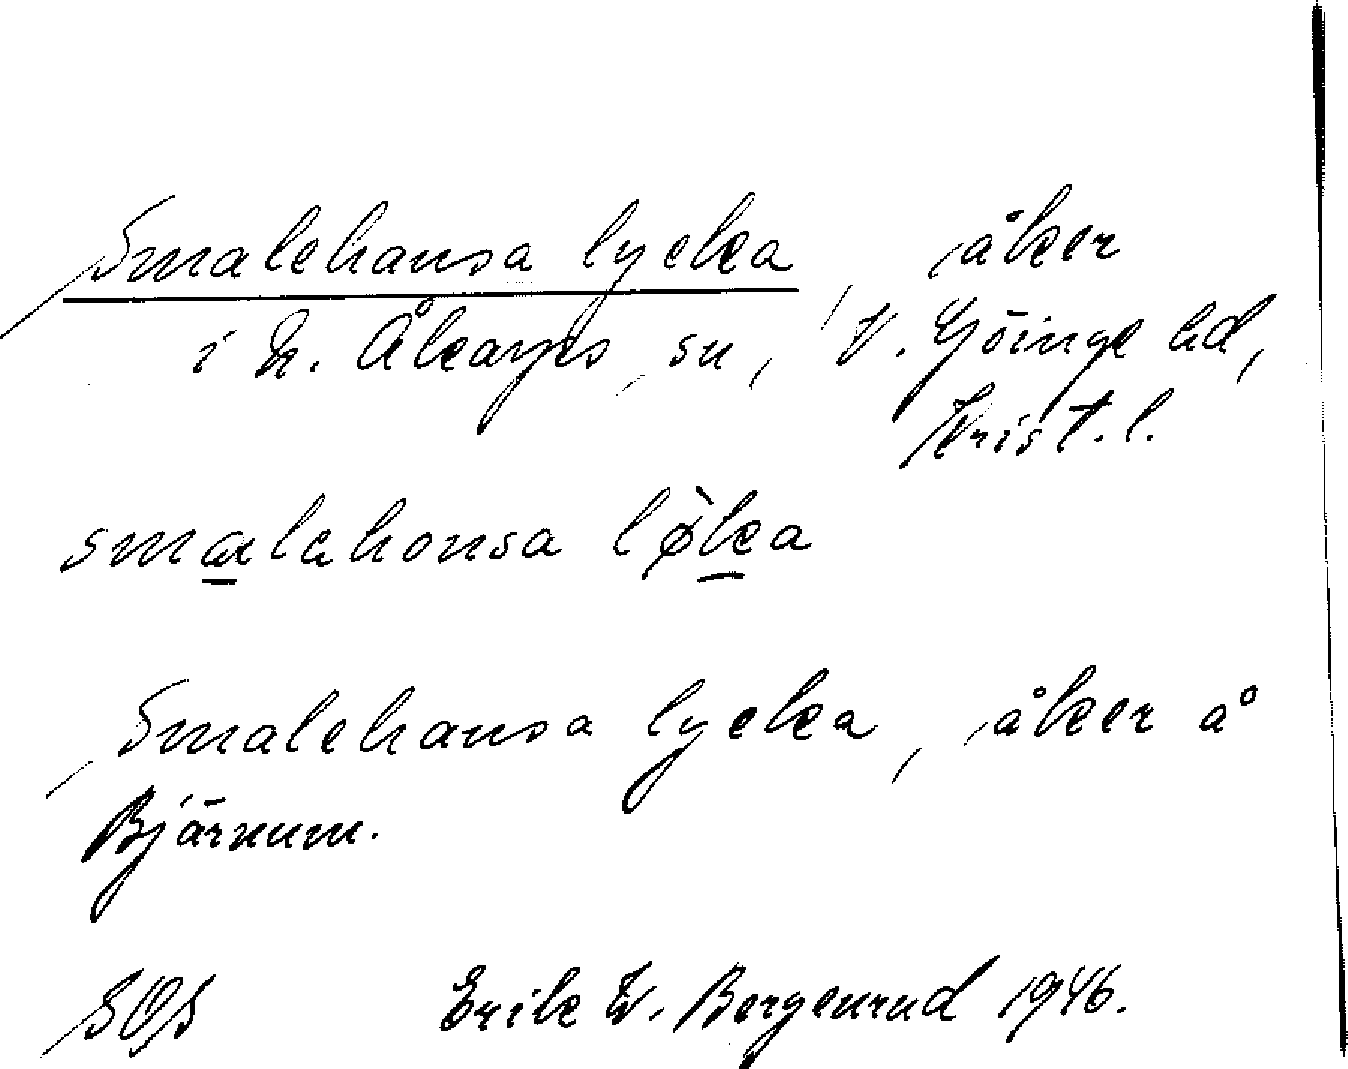 Smalehansa lycka åker
i N. Åkarps sn, V. Göinge hd,
Krist. l.
smalehonsa lø̀ka
Smalehansa lycka, åker å
Bjärnum.
SOS Erik W. Bergenrud 1946.